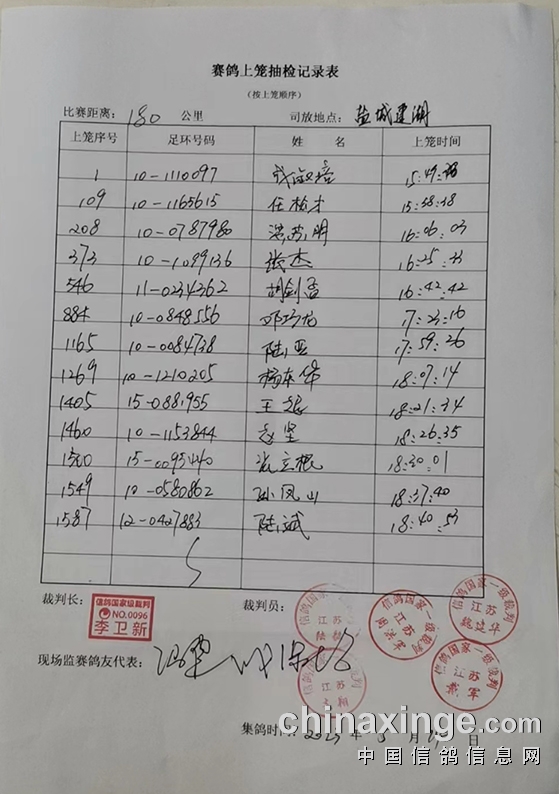 赛鸽上笼抽检记录表
（按上笼顺序）
比赛距离： 180 公里 司放地点： 盐城建湖
上笼序号 足环号码 姓 名 上笼时间
1 10-1110097 15:49:
109 10-1165615 任松才 15:58:38
208 10-0787980 16:06:03
373 10-1099136 张杰 16:25:33
546 11-0234362 16:42:42
884 10-0848556 邓巧龙 17:23:16
1165 10-0084738 陆亚 17:59:26
1269 10-1210205 杨本华 18:07:14
1405 15-0881955 王 18:21:34
1460 10-1153844 赵坚 18:26:35
1500 15-0095440 18:30:01
1549 10-0580862 孙凤山 18:37:40
1587 12-0427883 陆斌 18:40:53
裁判长： 裁判员：
信鸽国家级裁判
NO.0096
李卫新
信鸽国家一级裁判
江苏
信鸽国家一级裁判
江苏
信鸽国家一级裁判
江苏
魏建华
信鸽国家一级裁判
江苏
戴军
江苏
现场监赛鸽友代表：
集鸽时 2023 年 月 日
chinaxinge.com
中国信鸽信息网